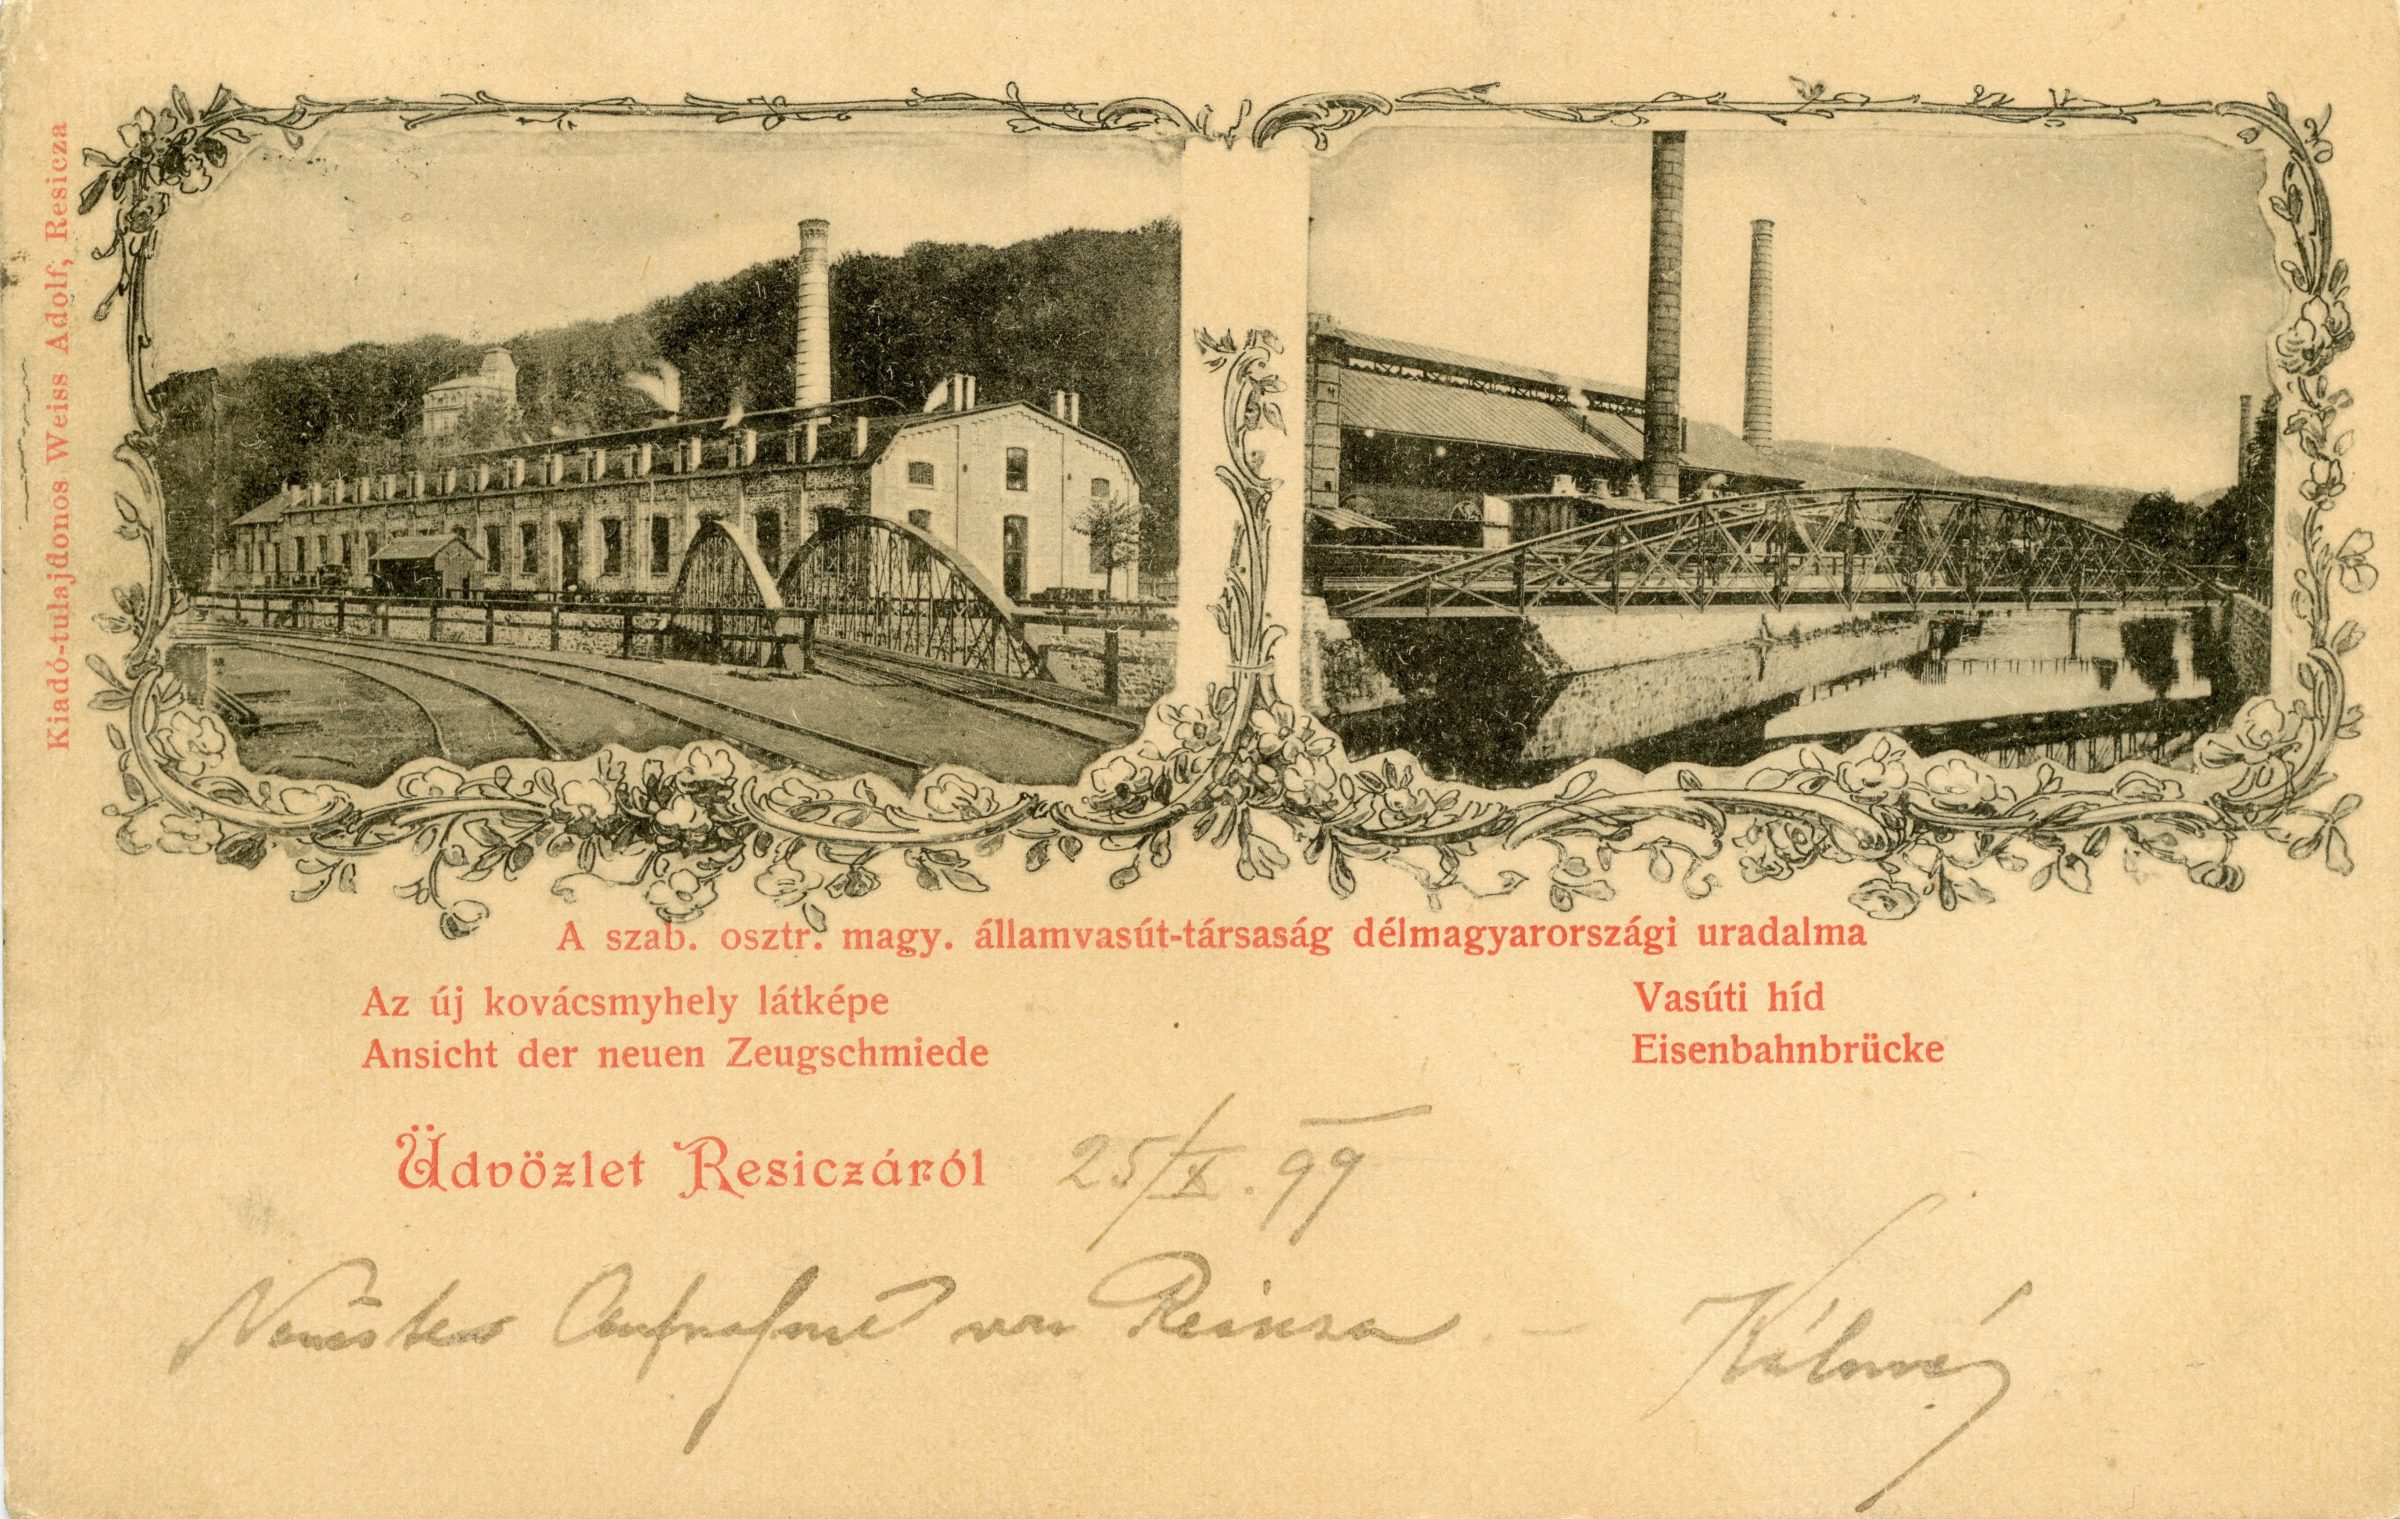 Kiadó-tulajdonos Weiss Adolf, Resicza
A szab. osztr. magy. államvasút-társaság délmagyarországi uradalma
Az új kovácsmyhely látképe
Ansicht der neuen Zeugschmiede
Vasúti híd
Eisenbahnbrücke
Üdvözlet Resiczáról 25/X. 99
Neuestes Aufnahme von Resicza. –
Kálmán